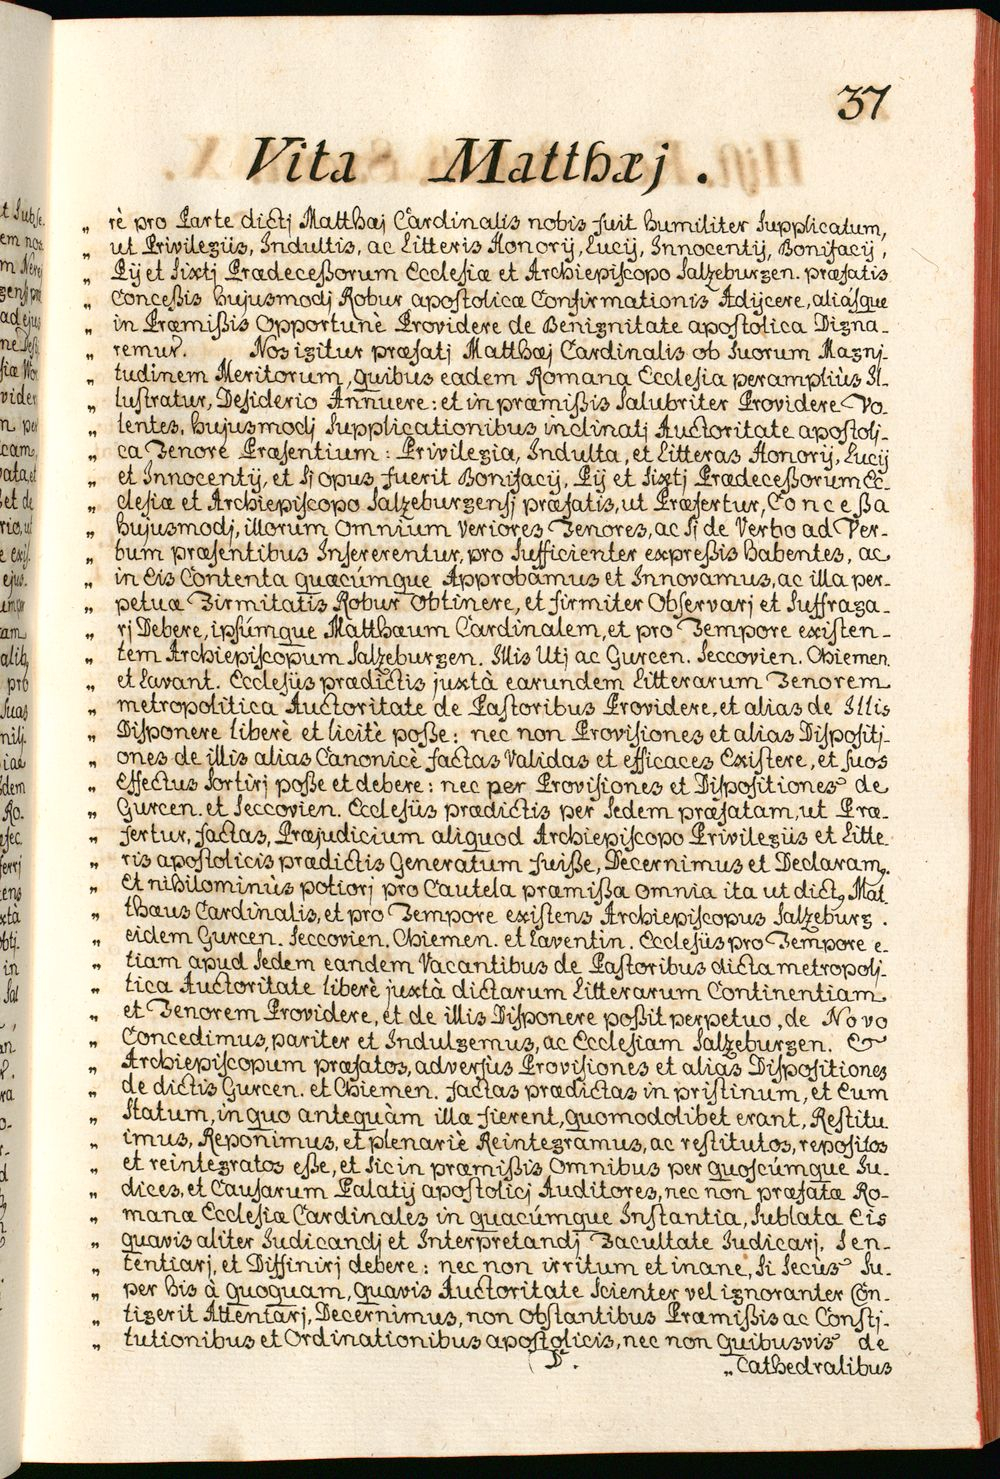 37
Vita Matthæj.
„ rè pro Parte dictj Matthæj Cardinalis nobis fuit humiliter Supplicatum,
„ ut Privilegiis, Indultis, ac Litteris Honorij, Lucij, Innocentij, Bonifacij,
„ Pij et Sixtj Prædeceßorum Ecclesiæ et Archiepiscopo Salzeburgen. præfatis
„ Conceßis hujusmodj Robur apostolicæ Confirmationis Adijcere, aliasque
„ in Præmißis Opportunè Providere de Benignitate apostolica Digna-
„ remur. Nos igitur præfatj Matthæj Cardinalis ob Suorum Magnj-
„ tudinem Meritorum, quibus eadem Romana Ecclesia perampliùs Il-
„ lustratur, Desiderio Annuere: et in præmißis Salubriter Providere Vo-
„ lentes, hujusmodj Supplicationibus inclinatj Auctoritate apostolj-
„ ca Tenore Præsentium: Privilegia, Indulta, et Litteras Honorij, Lucij
„ et Innocentij, et Sj opus fuerit Bonifacij, Pij et Sixtj Prædeceßorum Ec-
„ clesiæ et Archiepiscopo Salzeburgensj præfatis, ut Præfertur, Conceßa
„ hujusmodj, illorum Omnium Veriores Tenores, ac Sj de Verbo ad Ver-
„ bum præsentibus Insererentur, pro Sufficienter expreßis Habentes, ac
„ in Eis Contenta quæcúmque Approbamus et Innovamus, ac illa per-
„ petuæ Firmitatis Robur Obtinere, et firmiter Observarj et Suffraga-
„ rj Debere, ipsúmque Matthæum Cardinalem, et pro Tempore existen-
„ tem Archiepiscopum Salzeburgen. Illis Utj ac Gurcen. Seccovien. Chiemen.
„ et Lavant. Ecclesiis prædictis juxtà earundem Litterarum Tenorem
„ metropolitica Auctoritate de Pastoribus Providere, et alias de Illis
„ Disponere liberè et licitè poße: nec non Provisiones et alias Dispositj-
„ ones de illis alias Canonicè factas Validas et efficaces Existere, et suos
„ Effectus Sortirj poße et debere: nec per Provisiones et Dispositiones de
„ Gurcen. et Seccovien. Ecclesiis prædictis per Sedem præfatam, ut Præ-
„ fertur, factas, Præjudicium aliquod Archiepiscopo Privilegiis et Litte-
„ ris apostolicis prædictis Generatum fuiße, Decernimus et Declaram9.
„ Et nihilominùs potiorj pro Cautela præmißa omnia ita ut dict9 Mat-
„ thæus Cardinalis, et pro Tempore existens Archiepiscopus Salzeburg.
„ eidem Gurcen. Seccovien. Chiemen. et Laventin. Ecclesiis pro Tempore e-
„ tiam apud Sedem eandem Vacantibus de Pastoribus dicta metropolj-
„ tica Auctoritate liberè juxtà dictarum Litterarum Continentiam
„ et Tenorem Providere, et de illis Disponere poßit perpetuo, de Novo
„ Concedimus, pariter et Indulgemus, ac Ecclesiam Salzeburgen. &
„ Archiepiscopum præfatos, adversùs Provisiones et alias Dispositiones
„ de dictis Gurcen. et Chiemen. factas prædictas in pristinum, et Eum
„ Statum, in quo antequàm illæ fierent, quomodolibet erant, Restitu
„ imus, Reponimus, et plenariè Reintegramus, ac restitutos, repositos
„ et reintegratos eße, et Sic in præmißis Omnibus per quoscúmque Ju-
„ dices, et Causarum Palatij apostolicj Auditores, nec non præfatæ Ro-
„ manæ Ecclesiæ Cardinales in quacúmque Instantia, Sublata Eis
„ quavis aliter Judicandj et Interpretandj Facultate Judicarj, Sen-
„ tentiarj, et Diffinirj debere: nec non irritum et inane, Si Secùs Su-
„ per his à quoquam, quavis Auctoritate Scienter vel ignoranter Con-
„ tigerit Attentarj, Decernimus, non Obstantibus Præmißis ac Constj-
„ tutionibus et Ordinationibus apostolicis, nec non quibusvis de
D.
„ Cathedralibus